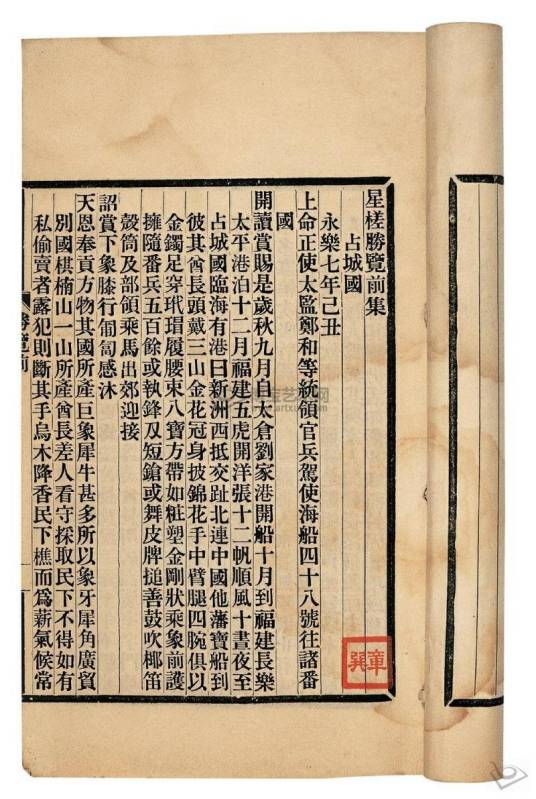 星槎勝覽前集
占城國
永樂七年己丑
上命正使太監鄭和等統領官兵駕使海船四十八號往諸番
國
開讀賞賜是歲秋九月自太倉劉家港開船十月到福建長樂
太平港泊十二月福建五虎開洋張十二帆順風十晝夜至
占城國臨海有港曰新洲西抵交趾北連中國他藩寶船到
彼其酋長頭戴三山金花冠身披錦花手巾臂腿四腕俱以
金鐲足穿玳瑁履腰束八寶方帶如粧塑金剛狀乘象前護
擁隨番兵五百餘或執鋒刄短鎗或舞皮牌搥善鼓吹椰笛
殼筒及部領乘馬出郊迎接
詔賞下象膝行匍匐感沐
天恩奉貢方物其國所產巨象犀牛甚多所以象牙犀角廣貿
別國棋楠山一山所產酋長差人看守採取民下不得如有
私偷賣者露犯則斷其手烏木降香民下樵而爲薪氣候常
勝覽前
章巽